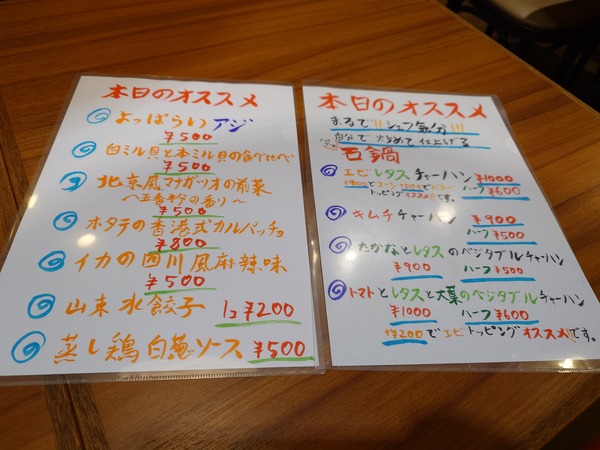 本日のオススメ
よっぱらいアジ
¥500
白ミル貝と本ミル貝の食べ比べ
¥500
北京風マナガツオの前菜
〜五香粉の香り〜
¥500
ホタテの香港式カルパッチョ
¥800
イカの四川風麻辣味
¥500
山東水餃子 1コ¥200
蒸し鶏白葱ソース ¥500
本日のオススメ
まるで!!シェフ気分!!!
自分で炒めて仕上げる
石鍋
エビレタスチャーハン ¥1000
ハーフ¥600
トッピングオススメです。
キムチチャーハン ¥900
ハーフ¥500
たかなとレタスのベジタブルチャーハン
¥900 ハーフ¥500
トマトとレタスと大葉のベジタブルチャーハン
¥1000 ハーフ¥600
+¥200でエビトッピングオススメです。